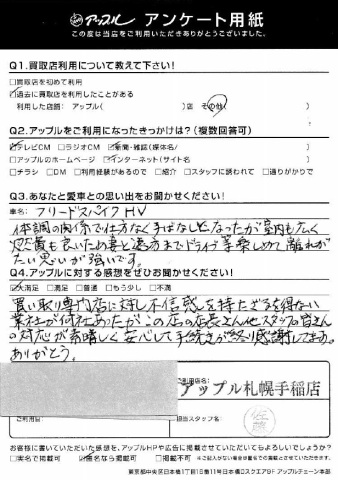 アップル アンケート用紙
この度は当店をご利用いただきありがとうございました。
Q1.買取店利用について教えて下さい!
□買取店を初めて利用
☑過去に買取店を利用したことがある
利用した店舗 アップル( )店 その他( )
Q2.アップルをご利用になったきっかけは?(複数回答可)
☑テレビCM □ラジオCM ☑新聞・雑誌(媒体名/ )
□アップルのホームページ ☑インターネット(サイト名 )
□チラシ □DM □利用経験があるので □紹介 □スタッフに誘われて □通りがかりで
Q3.あなたと愛車との思い出をお聞かせください!
車名: フリードスパイクHV
体調の関係で仕方なく手ばなしとなったが室内も広く
燃費も良いため妻と遠方までドライブ等楽しめて離れが
たい思いが強いです。
Q4.アップルに対する感想をぜひお聞かせください!
☑大満足 □満足 □普通 □もう少し □不満
買い取り専門店に対し不信感を持たざるを得ない
業社が何社あったがこの店の店長さん他スタッフの皆さん
の対応が素晴しく安心して手続きが終り感謝してます。
ありがとう。
アップル札幌手稲店
ご利用日: 担当スタッフ名:
佐藤
お客様に書いていただいた感想を、アップルHPや広告に掲載させていただいてもよろしいでしょうか?
□実名で掲載可 ☑匿名なら掲載可 □掲載不可 ※ご記入がない場合は匿名での掲載とさせていただきます。
東京都中央区日本橋1丁目16番11号日本橋Dスクエア9F アップルチェーン本部